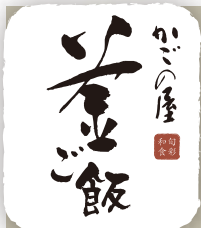 かごの屋
旬彩
和食
釜ご飯